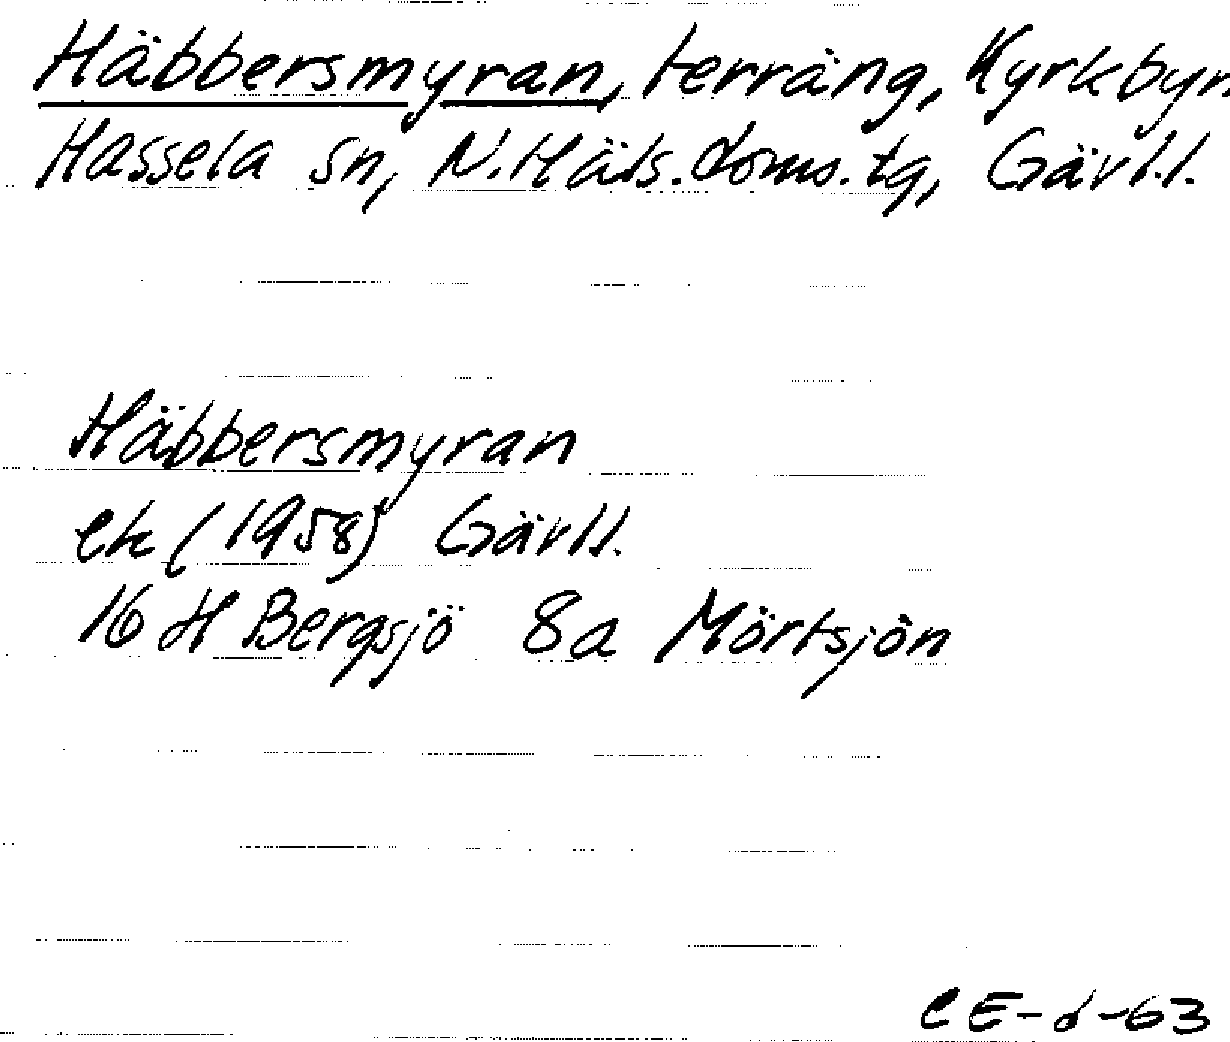 Häbbersmyran, terräng, Kyrkbyn
Hassela sn, N.Häls.doms.tg, Gävl.l.
Häbbersmyran
ek (1958) Gävl.l.
16 H Bergsjö 8a Mörtsjön
CE-d-63